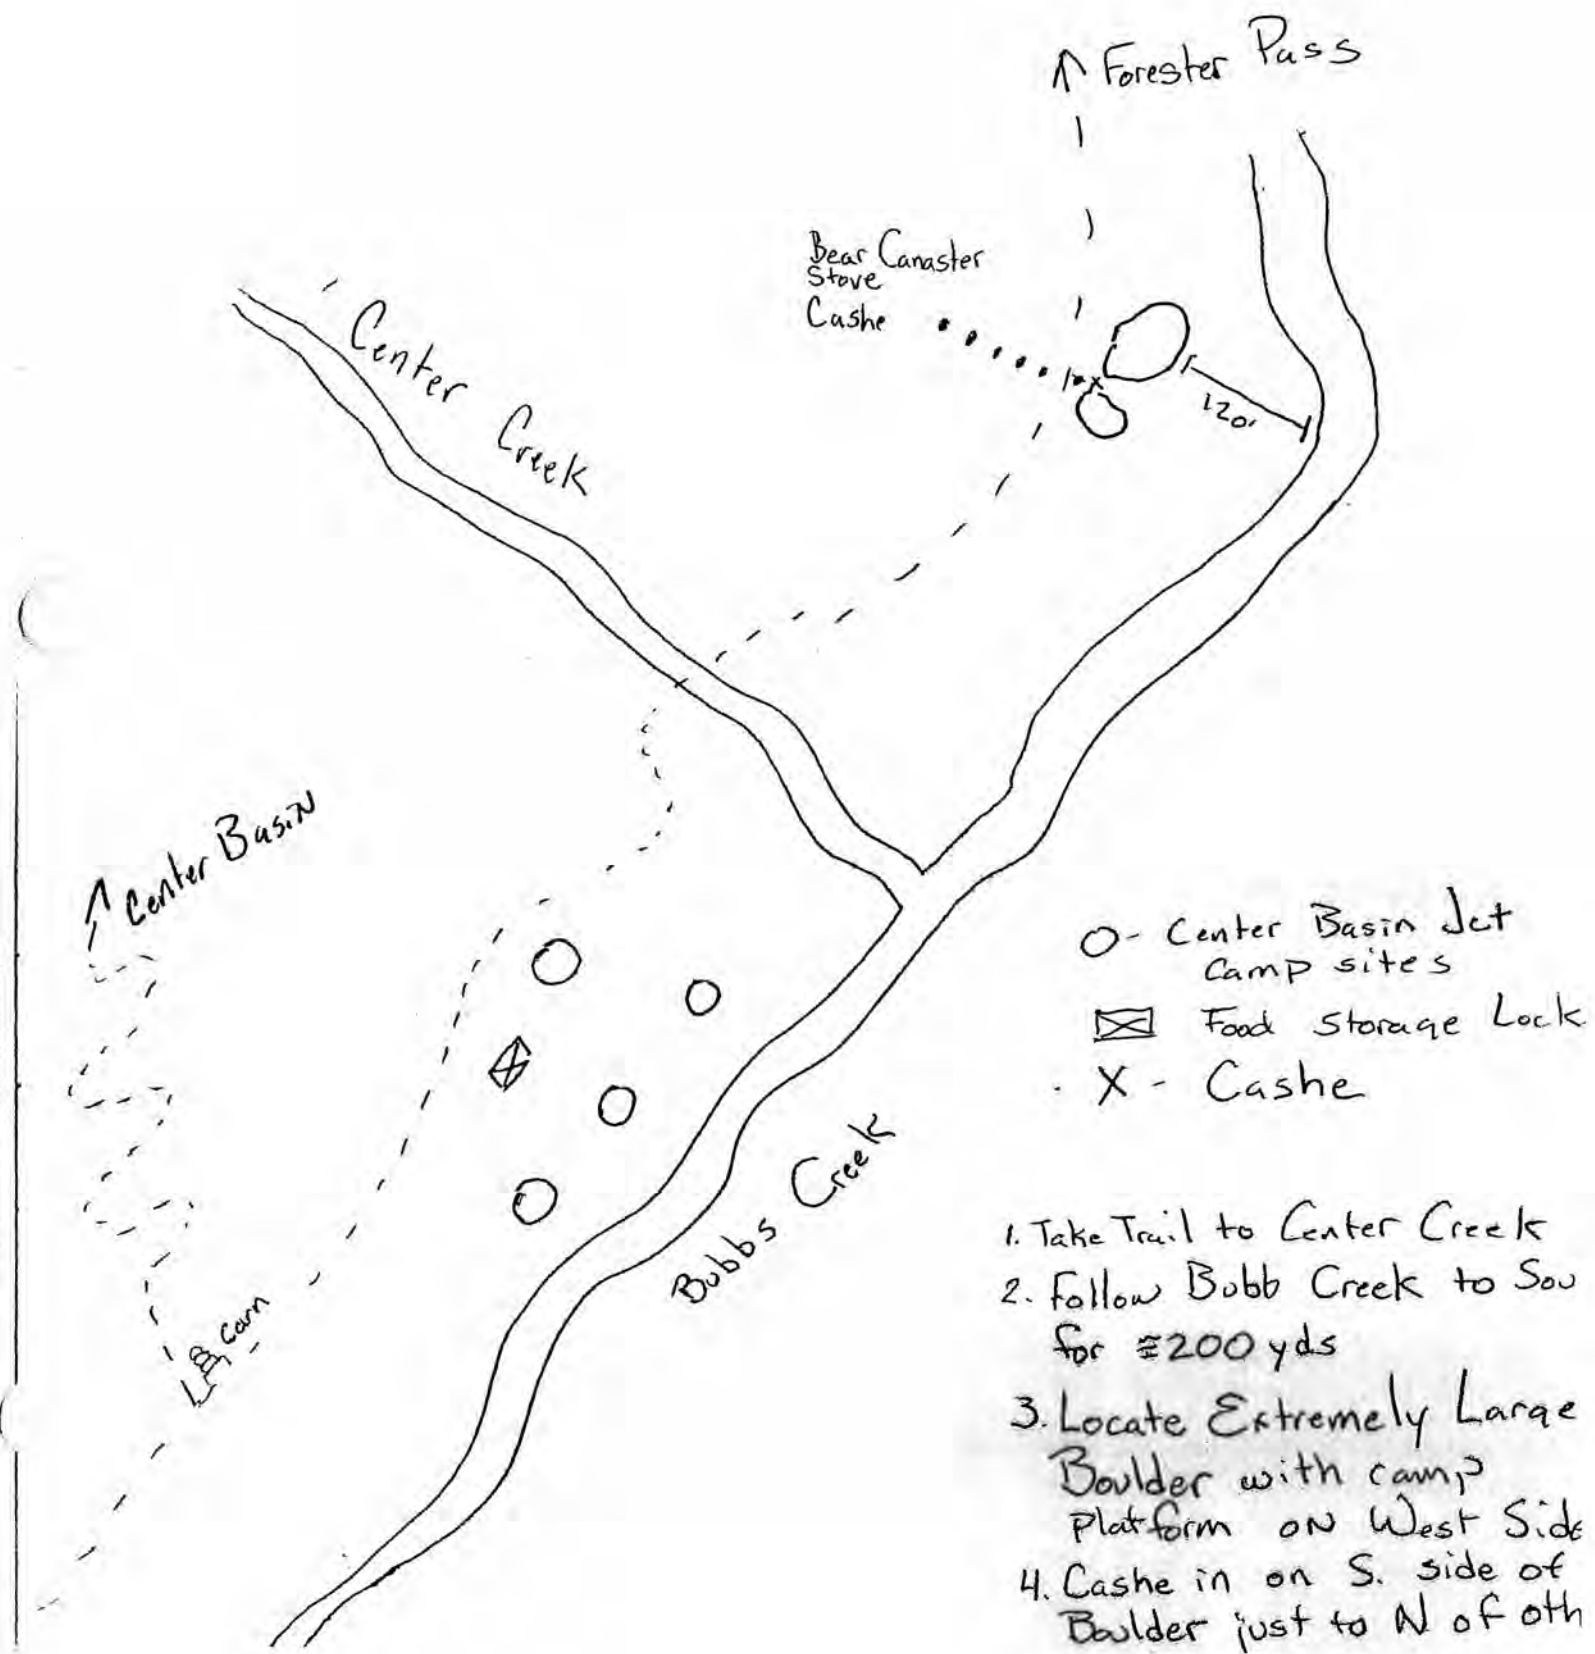 ↑ Forester Pass
Bear Canaster
Stove
Cashe
120'
Center Creek
↑ Center Basin
Carn
Bubbs Creek
O - Center Basin Jct
Camp sites
Food Storage Lock
X - Cashe
1. Take Trail to Center Creek
2. Follow Bubb Creek to Sou
for ≅200 yds
3. Locate Extremely Large
Boulder with camp
Platform on West Side
4. Cashe in on S. side of
Boulder just to N of oth